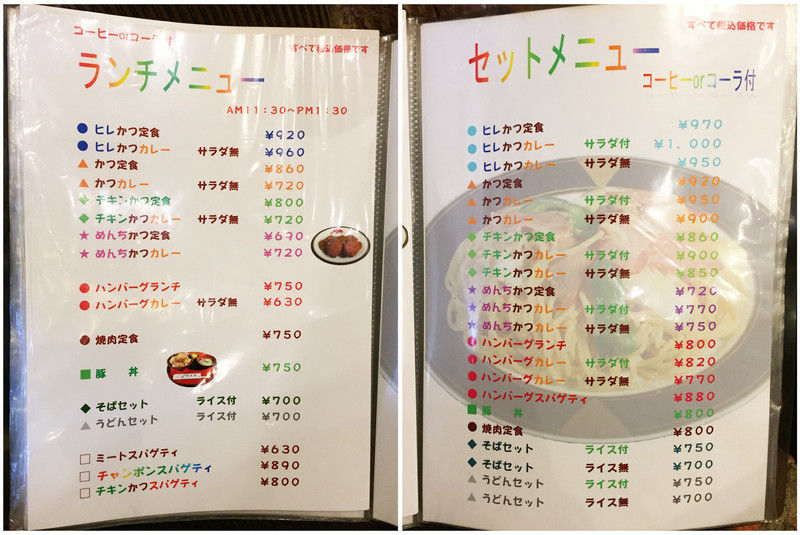 コーヒーorコーラ付
すべて税込価格です
ランチメニュー
AM11:30~PM1:30
● ヒレかつ定食 ¥920
● ヒレかつカレー サラダ無 ¥960
▲ かつ定食 ¥860
▲ かつカレー サラダ無 ¥720
◆ チキンかつ定食 ¥800
◆ チキンかつカレー サラダ無 ¥720
★ めんちかつ定食 ¥690
★ めんちかつカレー ¥720
● ハンバーグランチ ¥750
● ハンバーグカレー サラダ無 ¥630
● 焼肉定食 ¥750
■ 豚 丼 ¥750
◆ そばセット ライス付 ¥700
▲ うどんセット ライス付 ¥700
□ ミートスパゲティ ¥630
□ チャンポンスパゲティ ¥890
□ チキンかつスパゲティ ¥800
すべて税込価格です
セットメニュー
コーヒーorコーラ付
● ヒレかつ定食 ¥970
● ヒレかつカレー サラダ付 ¥1,000
● ヒレかつカレー サラダ無 ¥950
▲ かつ定食 ¥920
▲ かつカレー サラダ付 ¥950
▲ かつカレー サラダ無 ¥900
◆ チキンかつ定食 ¥860
◆ チキンかつカレー サラダ付 ¥900
◆ チキンかつカレー サラダ無 ¥850
★ めんちかつ定食 ¥720
★ めんちかつカレー サラダ付 ¥770
★ めんちかつカレー サラダ無 ¥750
● ハンバーグランチ ¥800
● ハンバーグカレー サラダ付 ¥820
● ハンバーグカレー サラダ無 ¥770
● ハンバーグスパゲティ ¥880
■ 豚 丼 ¥800
● 焼肉定食 ¥800
◆ そばセット ライス付 ¥750
◆ そばセット ライス無 ¥700
▲ うどんセット ライス付 ¥750
▲ うどんセット ライス無 ¥700